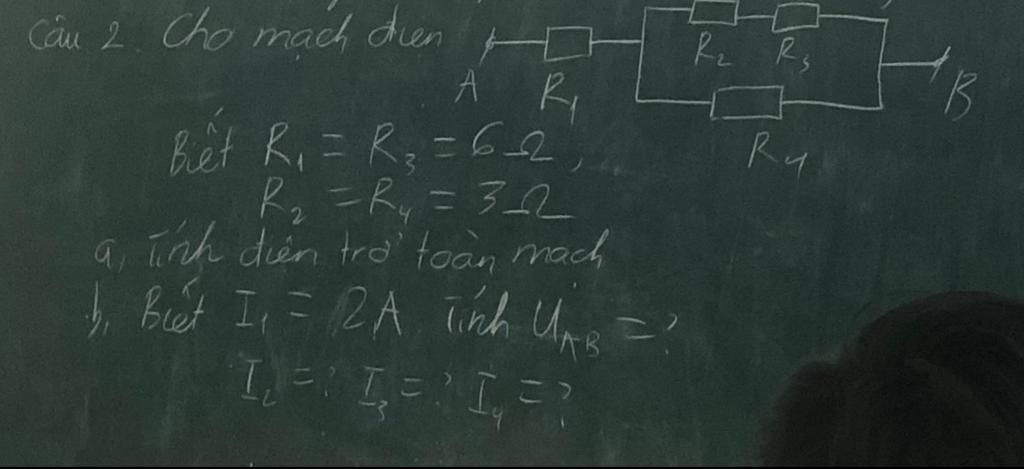 Câu 2. Cho mạch điện
R₂ R₃
A R₁ B
R₄
Biết R₁ = R₃ = 6Ω,
R₂ = R₄ = 3Ω
a, Tính điện trở toàn mạch
b, Biết I₁ = 2A Tính U_AB = ?
I₂ = ? I₃ = ? I₄ = ?